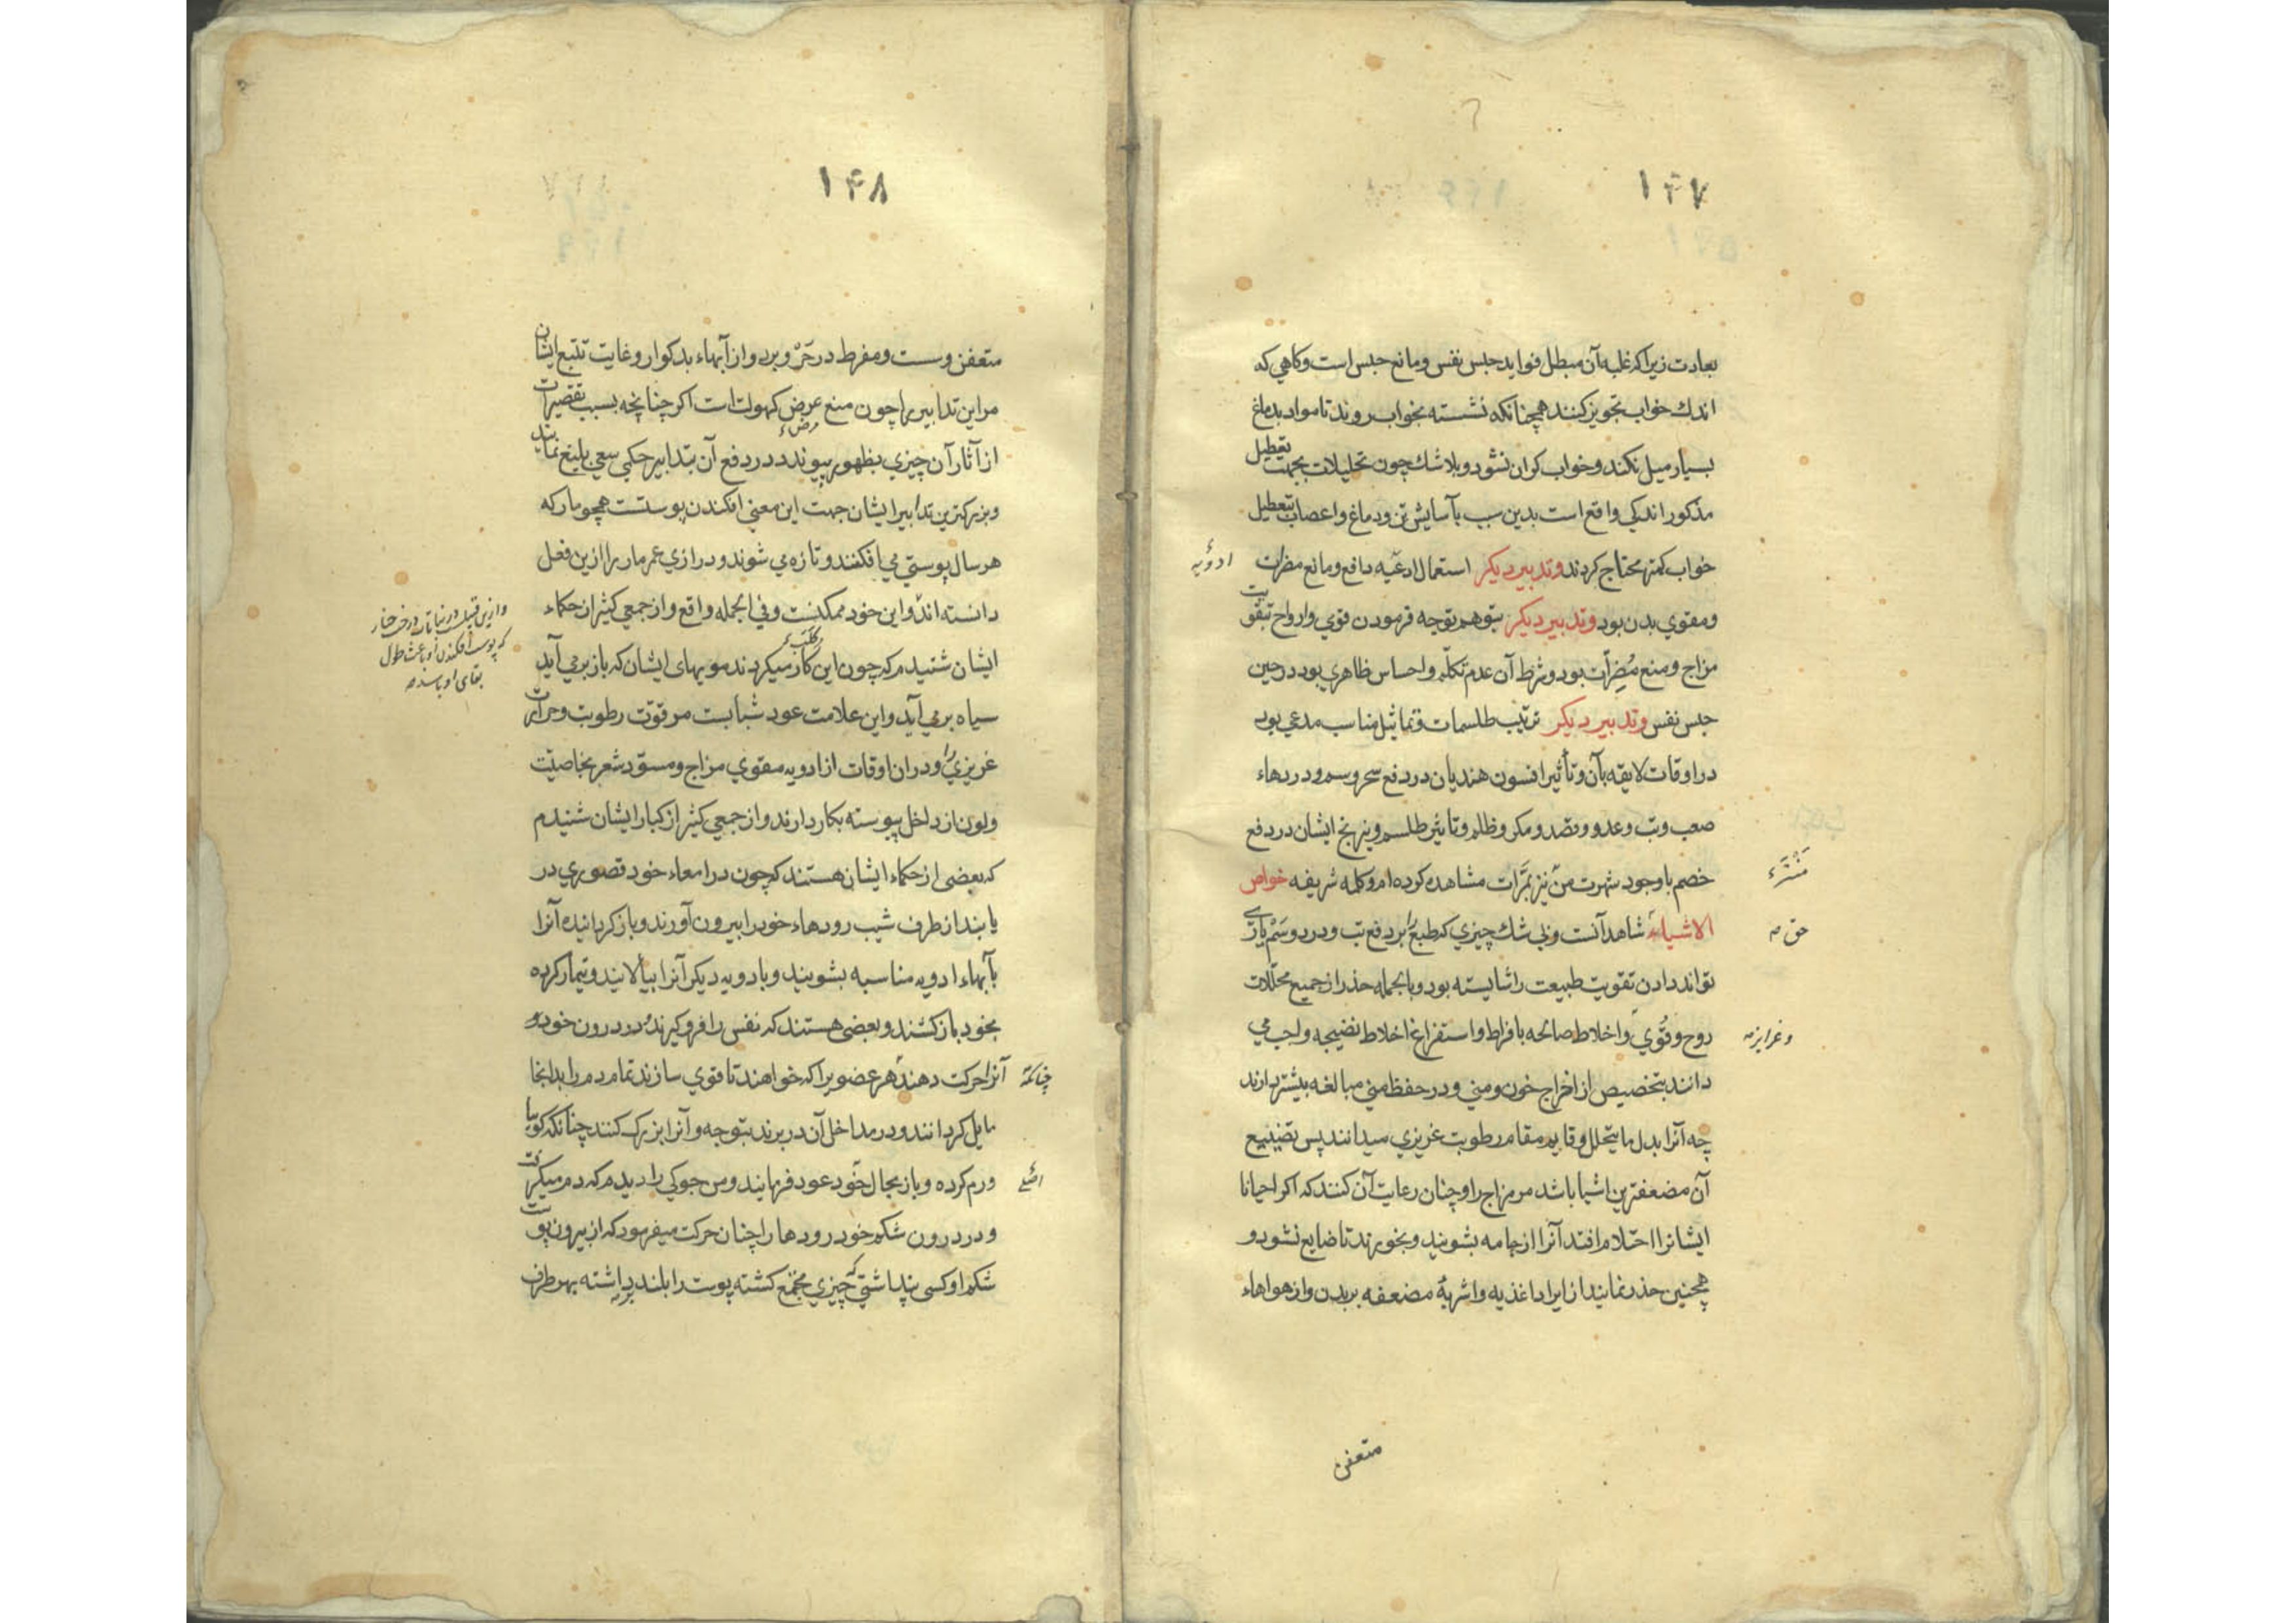 ۱۴۷
بعادت زیرا که غلبه آن مبطل فواید حبس نفس و مانع حبس است و کاهی که
اندك خواب تجویز کنند همچنانکه نشسته بخواب روند تا مواد بدماغ
بسیار میل نکند و خواب کران نشود و بلا شك چون تحلیلات بجهت تعطیل
مذکور اندکی واقع است بدین سبب بآسایش تن و دماغ و اعصاب بتعطیل
خواب کمتر محتاج کردند و تدبیر دیکر استعمال ادعیه دافع و مانع مضرات
ادویه
و مقوي بدن بود و تدبیر دیکر بتوهم توجه فرمودن قوي و ارواح بتقویت
مزاج و منع مُضِرّات بود و شرط آن عدم تکلّم و احساس ظاهري بود در حین
حبس نفس و تدبیر دیکر ترتیب طلسمات و تماثیل مناسب مدعی بود
در اوقات لایقه بآن و تأثیر افسون هندیان در دفع سحر و سم و دردهاء
صعب و تب و عدو و قصد و مکر و ظلم و تاثیر طلسم و نیرنج ایشان در دفع
خصم با وجود شهرت من نیز بمَرّات مشاهده کرده ام و کلمه شریفه خواص
الاشیاء شاهد آنست و بی شك چیزي که طبع را بر دفع تب و درد و سَم یاري
حق
تواند دادن تقویت طبیعت را شایسته بود و بالجمله حذر از جمیع محلّلات
روح و قُوّي و اخلاط صالحه بافراط و استفراغ اخلاط نضیجه واجب می
و غرایز
دانند بتخصیص از اخراج خون و منی و در حفظ منی مبالغه بیشتر دارند
چه آنرا بدل ما یتحلل و قایم مقام رطوبت غریزي میدانند پس تضییع
آن مضعفترین اشیا باشد مر مزاج را و چنان رعایت آن کنند که اکر احیانا
ایشانرا احتلام افتد آنرا از جامه بشویند و بخورند تا ضایع نشود و
همچنین حذر نمایند از ایراد اغذیه و اشربهٔ مضعفه بر بدن و از هواهاء
متعفن
۱۴۸
متعفن و سست و مفرط در حَرّ و برد و از آبهاء بدکوار و غایت تتبع ایشان
مر این تدابیر را چون منع عرض کهولت است اکر چنانچه بسبب تقصیرات
از آثار آن چیزي بظهور پیوندد در دفع آن بتدابیر حکمي سعي بلیغ نمایند
و بزرکترین تدابیر ایشان جهت این معني افکندن پوستست همچو مار که
هر سال پوستي می افکنند و تازه می شوند و درازي عمر مار را از ین فعل
دانسته اند و این خود ممکنست و في الجمله واقع و از جمعي کثیر از حکماء
و ازین قبیلست در نباتات درخت خیار
که پوست افکندن او باعث طول
بقای او باشد
ایشان شنیدم که چون این کار میکردند مویهای ایشان که باز برمی آید
سیاه برمی آید و این علامت عود شبابست مر قوّت رطوبت و حرارت
غریزي را و در ان اوقات از ادویه مقوي مزاج و مسوّد شعر بخاصیّت
ولون از داخل پیوسته بکار دارند و از جمعي کثیر از کبار ایشان شنیدم
که بعضی از حکماء ایشان هستند که چون در امعاء خود قصوري در
یابند از طرف شیب رودهاء خود را بیرون آورند و باز کردانیده آنرا
بآبهاء ادویه مناسبه بشویند و بادویه دیکر آنرا بیالایند و تیمار کرده
بخود باز کشند و بعضی هستند که نفس را فرو کیرند و در درون خود
آنرا حرکت دهند هر عضویرا که خواهند تا قوي سازند تمام دم را بدانجا
چنانکه
مایل کردانند و در مداخل آن در برند بتوجه و آنرا بزرك کنند چنانکه کویا
ورم کرده و باز بحال خود عود فرمایند و من جوکي را دیدم که دم میکرفت
اصلی
و در درون شکم خود رودها را چنان حرکت میفرمود که از بیرون پوست
شکم او کسی پنداشتي که چیزي مجتمع کشته پوست را بلند برداشته بهر طرف